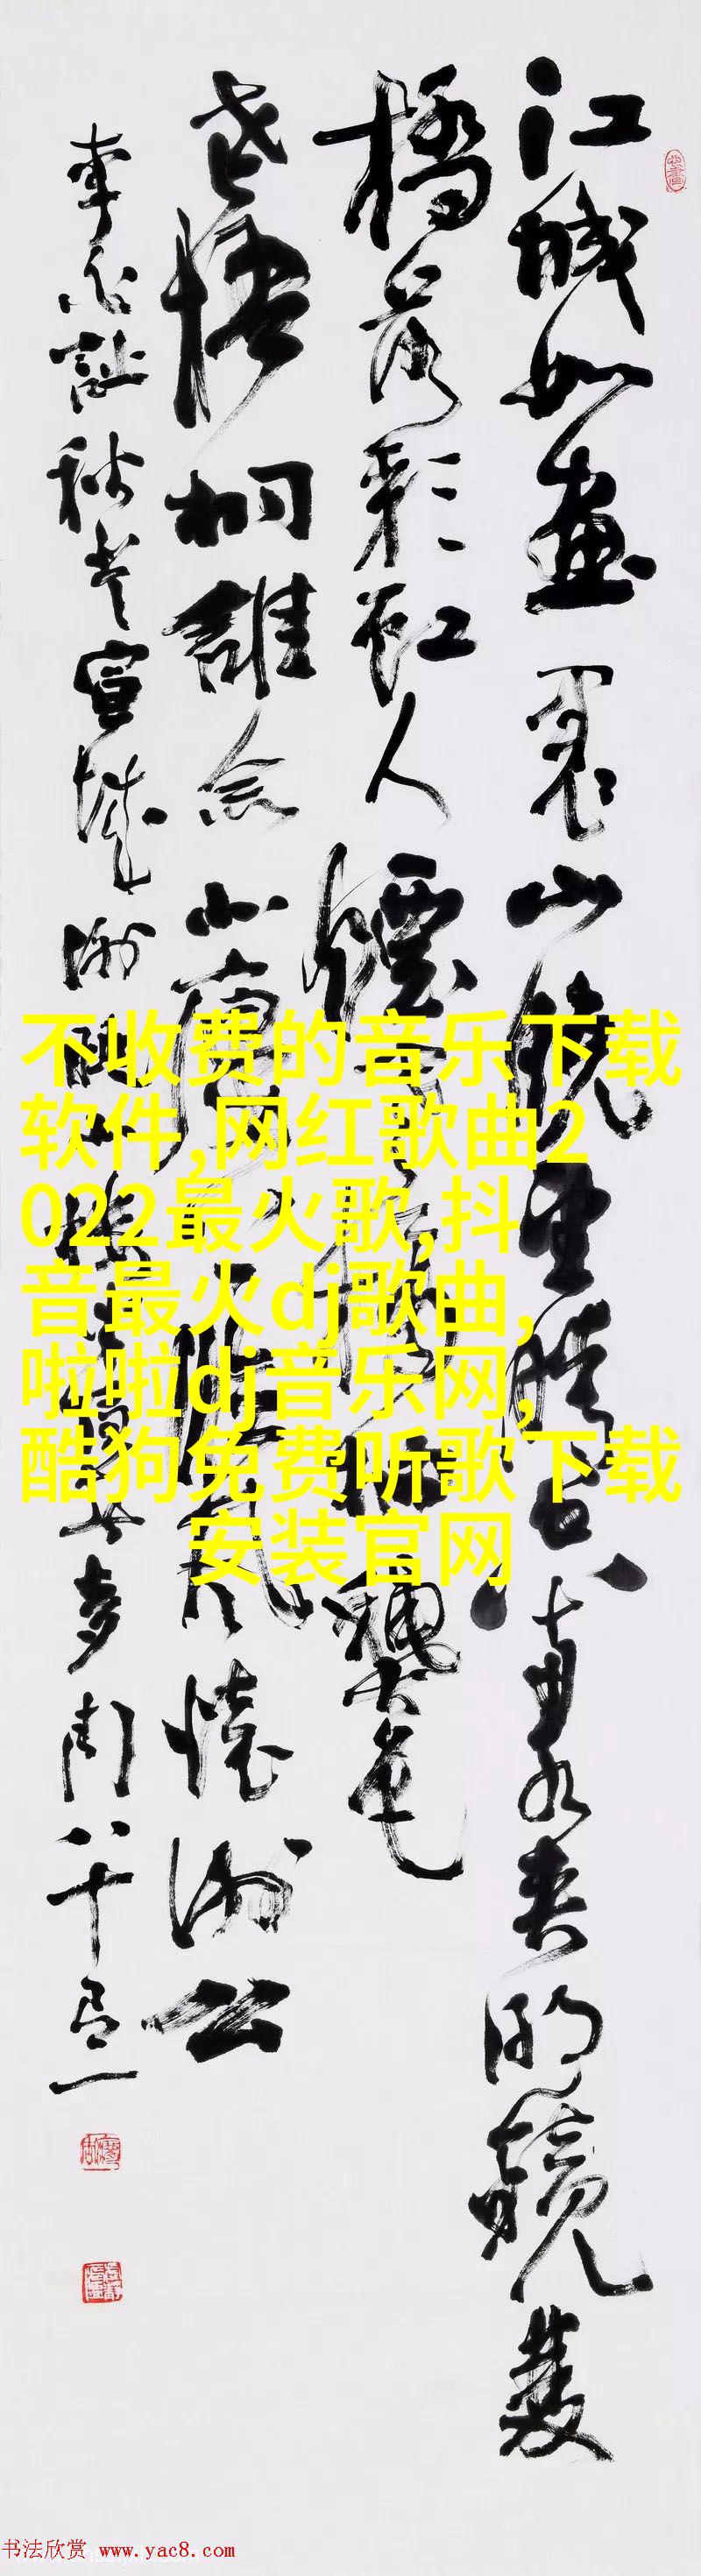 江城如畫裏山晚望晴空兩水夾明鏡雙
橋落彩虹人煙寒橘柚秋色
老梧桐誰念北樓上臨風懷謝公
李白詩秋登宣城謝朓北樓 八十
不收费的音乐下载
软件,网红歌曲2
022最火歌,抖
音最火dj歌曲,
啦啦dj音乐网,
酷狗免费听歌下载
安装官网
书法欣赏 www.yac8.com